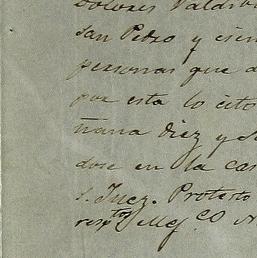 Dolores Valdi
San Pedro y
personas que
por esta lo cito
ñana diez y
dose en la cas
S. Juez. Protesto
resp<sup>tos</sup>